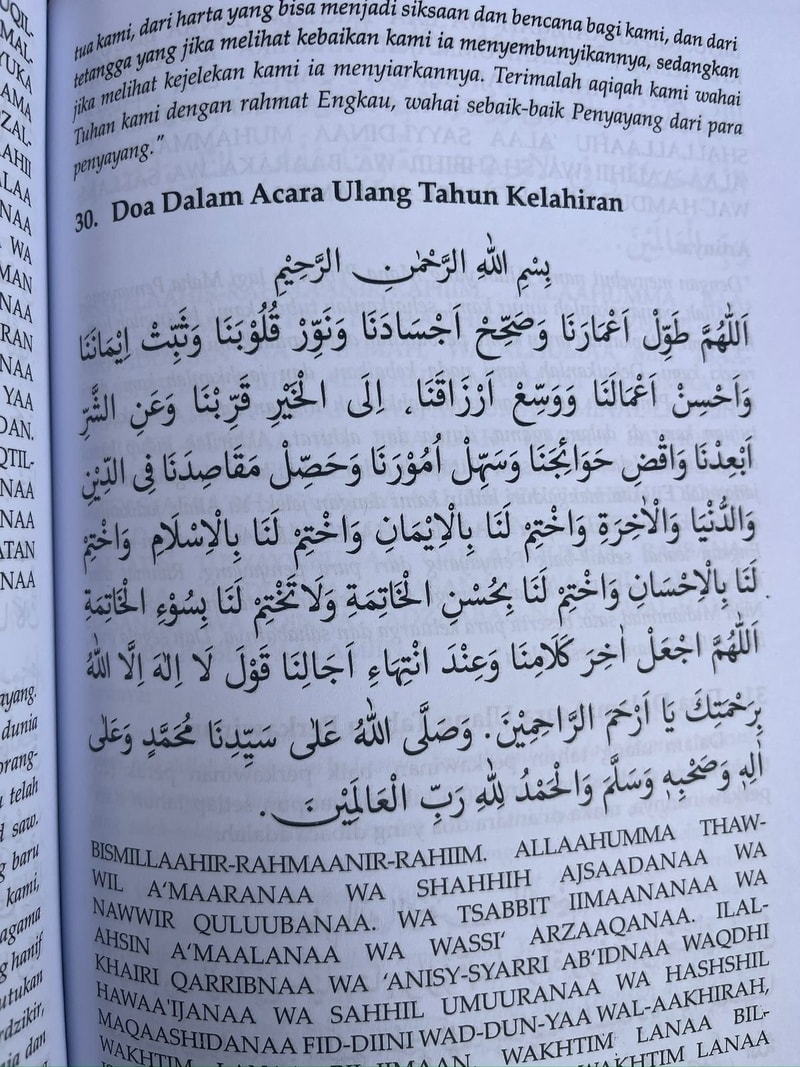 UQIL-
MAL-
YUKA
AMA
ZAL-
AHII
ALAA
NAA
WA
MAN
NAA
RAN
NAA
YAA
DAN.
QTIL-
NAA
NAA
ATAN
NAA
ayang.
dunia
orang-
telah
saw.
baru
kami,
agama
hanif
utukan
rdzikir,
dan
tua kami, dari harta yang bisa menjadi siksaan dan bencana bagi kami, dan dari
tetangga yang jika melihat kebaikan kami ia menyembunyikannya, sedangkan
jika melihat kejelekan kami ia menyiarkannya. Terimalah aqiqah kami wahai
Tuhan kami dengan rahmat Engkau, wahai sebaik-baik Penyayang dari para
penyayang."
30. Doa Dalam Acara Ulang Tahun Kelahiran
بِسْمِ اللهِ الرَّحْمٰنِ الرَّحِيْمِ
اَللّٰهُمَّ طَوِّلْ اَعْمَارَنَا وَصَحِّحْ اَجْسَادَنَا وَنَوِّرْ قُلُوْبَنَا وَثَبِّتْ اِيْمَانَنَا
وَاَحْسِنْ اَعْمَالَنَا وَوَسِّعْ اَرْزَاقَنَا، اِلَى الْخَيْرِ قَرِّبْنَا وَعَنِ الشَّرِّ
اَبْعِدْنَا وَاقْضِ حَوَائِجَنَا وَسَهِّلْ اُمُوْرَنَا وَحَصِّلْ مَقَاصِدَنَا فِى الدِّيْنِ
وَالدُّنْيَا وَالْاٰخِرَةِ وَاخْتِمْ لَنَا بِالْاِيْمَانِ وَاخْتِمْ لَنَا بِالْاِسْلَامِ وَاخْتِمْ
لَنَا بِالْاِحْسَانِ وَاخْتِمْ لَنَا بِحُسْنِ الْخَاتِمَةِ وَلَا تَخْتِمْ لَنَا بِسُوْءِ الْخَاتِمَةِ.
اَللّٰهُمَّ اجْعَلْ اٰخِرَ كَلَامِنَا وَعِنْدَ انْتِهَاءِ اٰجَالِنَا قَوْلَ لَا اِلٰهَ اِلَّا اللهُ
بِرَحْمَتِكَ يَا اَرْحَمَ الرَّاحِمِيْنَ. وَصَلَّى اللهُ عَلٰى سَيِّدِنَا مُحَمَّدٍ وَعَلٰى
اٰلِهِ وَصَحْبِهِ وَسَلَّمَ وَالْحَمْدُ لِلهِ رَبِّ الْعَالَمِيْنَ.
BISMILLAAHIR-RAHMAANIR-RAHIIM. ALLAAHUMMA THAW-
WIL A'MAARANAA WA SHAHHIH AJSAADANAA WA
NAWWIR QULUUBANAA. WA TSABBIT IIMAANANAA WA
AHSIN A'MAALANAA WA WASSI' ARZAAQANAA. ILAL-
KHAIRI QARRIBNAA WA 'ANISY-SYARRI AB'IDNAA WAQDHI
HAWAA'IJANAA WA SAHHIL UMUURANAA WA HASHSHIL
MAQAASHIDANAA FID-DIINI WAD-DUN-YAA WAL-AAKHIRAH,
WAKHTIM LANAA BIL-IIMAAN, WAKHTIM LANAA BIL-
WAKHTIM LANAA